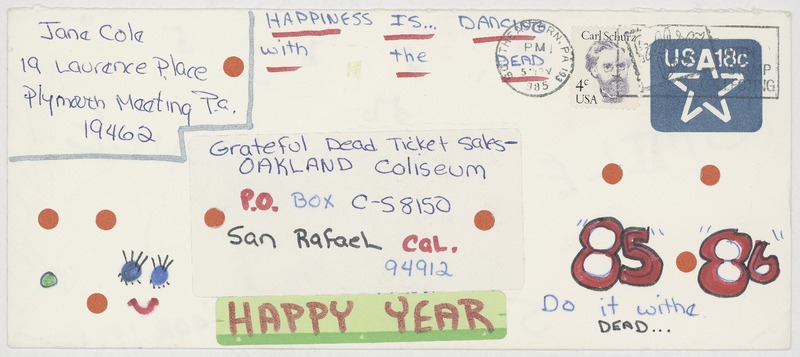 Jane Cole
19 Laurence Place
Plymouth Meeting Pa.
19462
HAPPINESS IS... DANCING
with the DEAD
SOUTHEASTERN, PA 193
PM
1985
Carl Schurz
4c
USA
USA 18c
Grateful Dead Ticket Sales-
OAKLAND Coliseum
P.O. BOX C-S8150
San Rafael CaL.
94912
HAPPY YEAR
"85" "86"
Do it withe
DEAD...